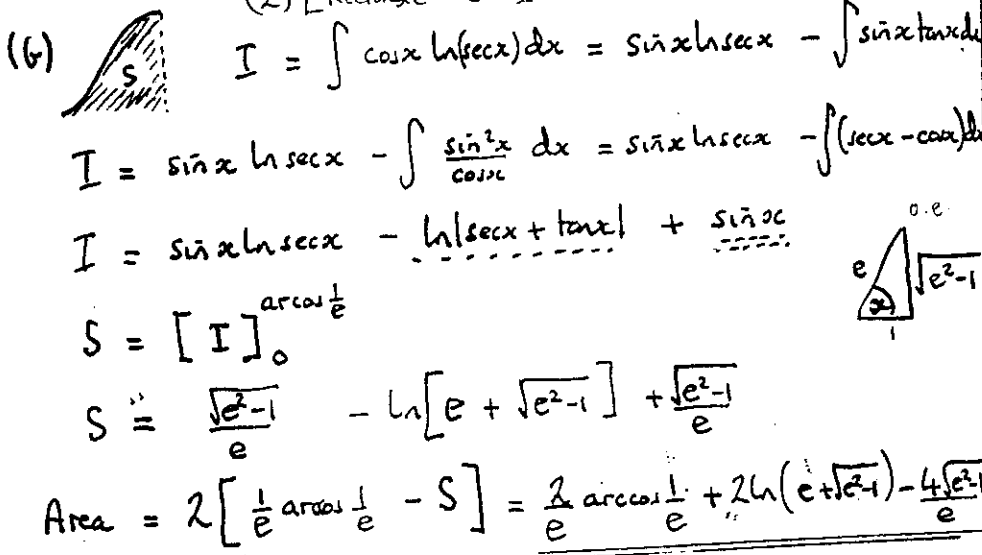 (2) [Rectangle
(6) S I = ∫ cosx ln(secx) dx = sinx lnsecx − ∫ sinx tanx dx
I = sinx ln secx − ∫ sin²x/cosx dx = sinx lnsecx − ∫(secx − cosx)dx
I = sinx lnsecx − ln|secx + tanx| + sinx
e x 1 √e²−1
S = [I]₀^arccos 1/e
S = √e²−1/e − ln[e + √e²−1] + √e²−1/e
Area = 2[1/e arccos 1/e − S] = 2/e arccos 1/e + 2ln(e+√e²−1) − 4√e²−1/e